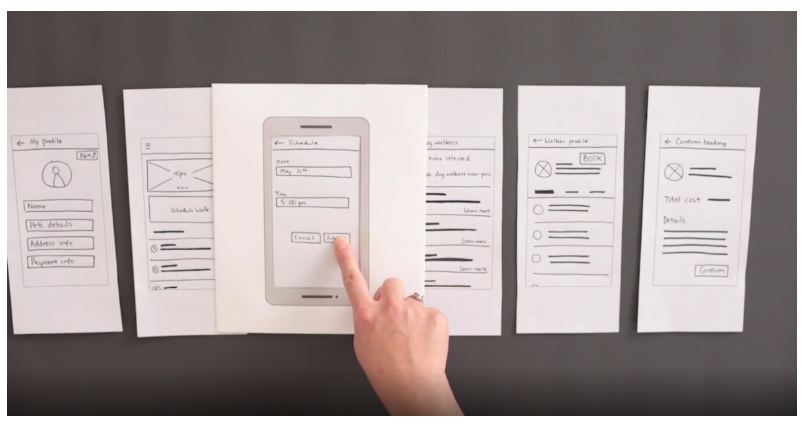 ← My profile
Edit
Name
Pets details
Address info
Payment info
Tips
Schedule Walk
← Schedule
Date
May 11th
Time
5:00 pm
Cancel
og walkers
time selected
dog walkers near you
Learn more
Learn more
Learn more
← Walker profile
BOOK
← Confirm booking
Total cost
Details
Confirm